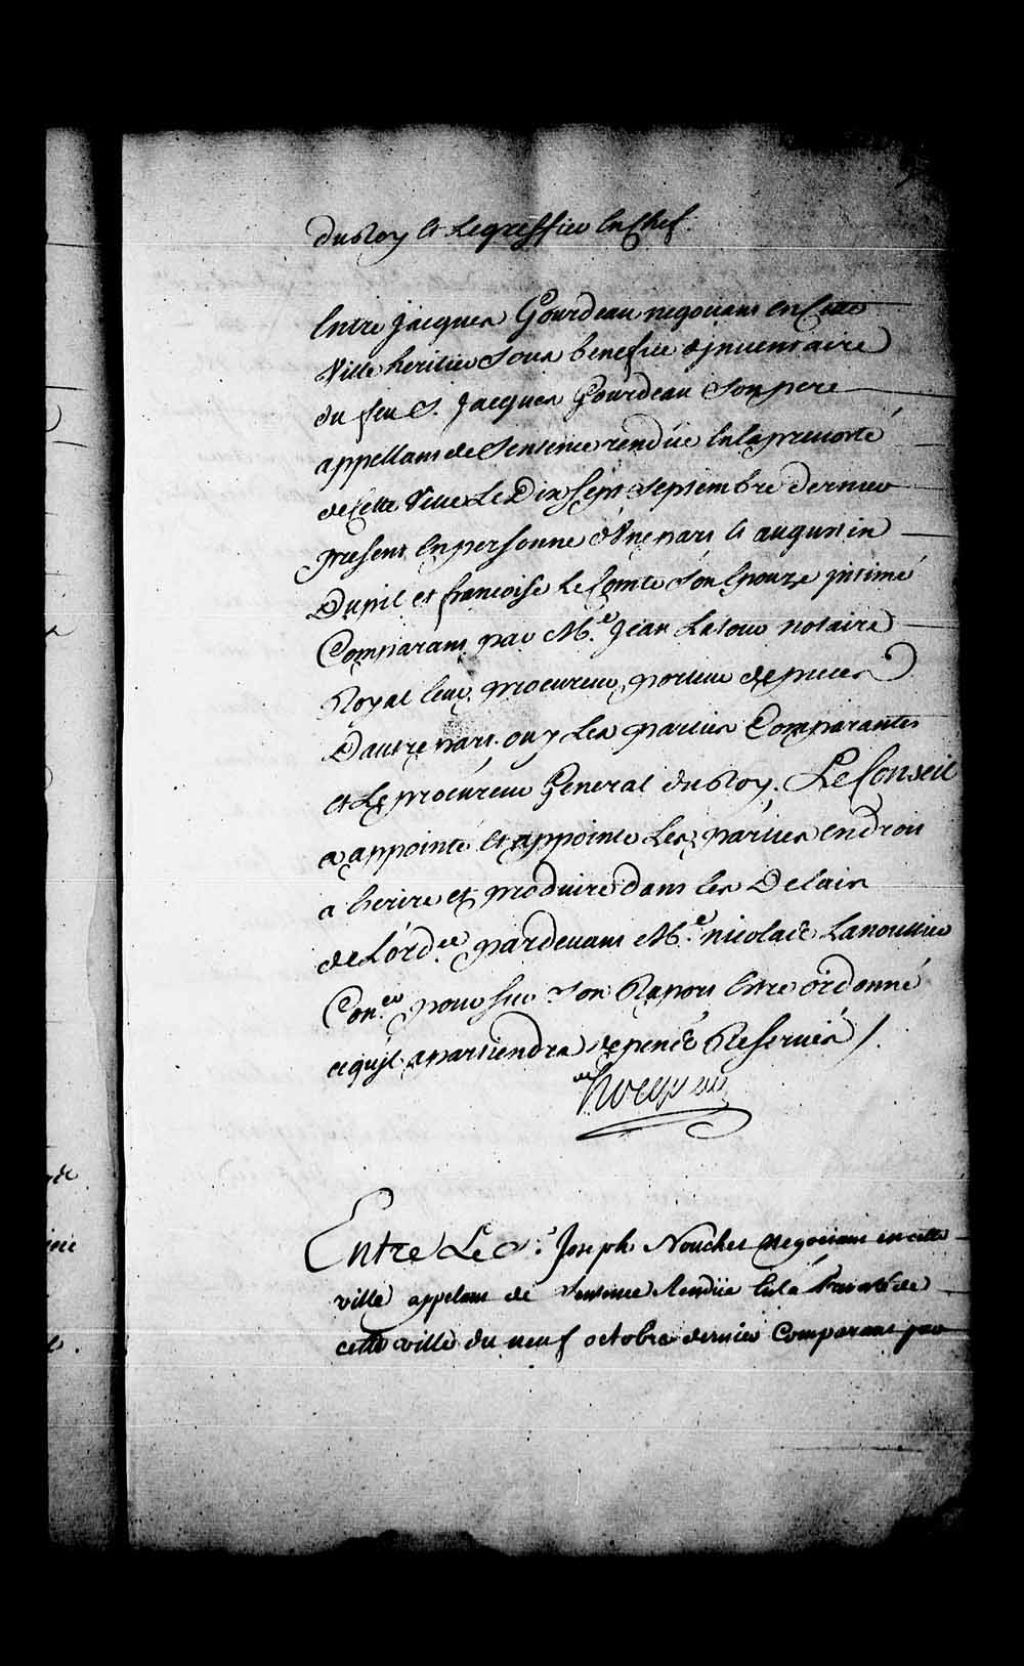 du Roy et Le greffier en Chef.
Entre Jacques Gourdeau negociant en Cette
Ville heritier sous benefice d'jnventaire
du feu S. Jacques Gourdeau Son pere
appellant de Sentence rendüe en la prevosté
de Cette Ville Le Dix Sept Septembre dernier
present en personne d'Vne part et augustin
Dupil et francoise Le Comte Son Epouze jntimé
Comparant par M.e Jean Latour notaire
Royal leur procureur, porteur de pieces
D'autre part. ouy Les parties Comparantes
et Le procureur General du Roy. Le Conseil
a appointé et appointe Les parties en droit
a Ecrire et produire dans les Delais
de L'ord.ce pardevant M.e nicolas Lanoullier
Con.er pour sur Son Raport Estre ordonné
ce qu'jl apartiendra depens Reservés /.
Hocquart
Entre Le S.r Joseph Nouchet negociant en cette
ville appelant de Sentence Rendüe en la prevosté de
cette ville du neuf octobre dernier Comparant par